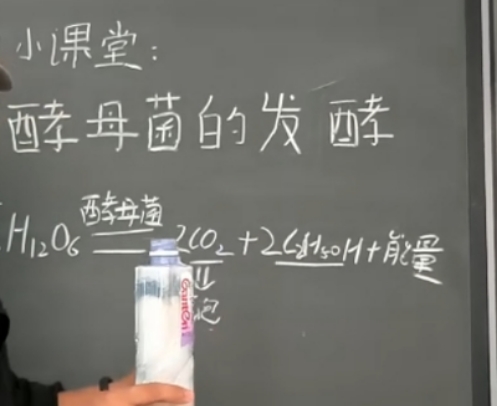 小课堂：
酵母菌的发酵
H12O6 酵母菌 2CO2 + 2C2H5OH + 能量
泡